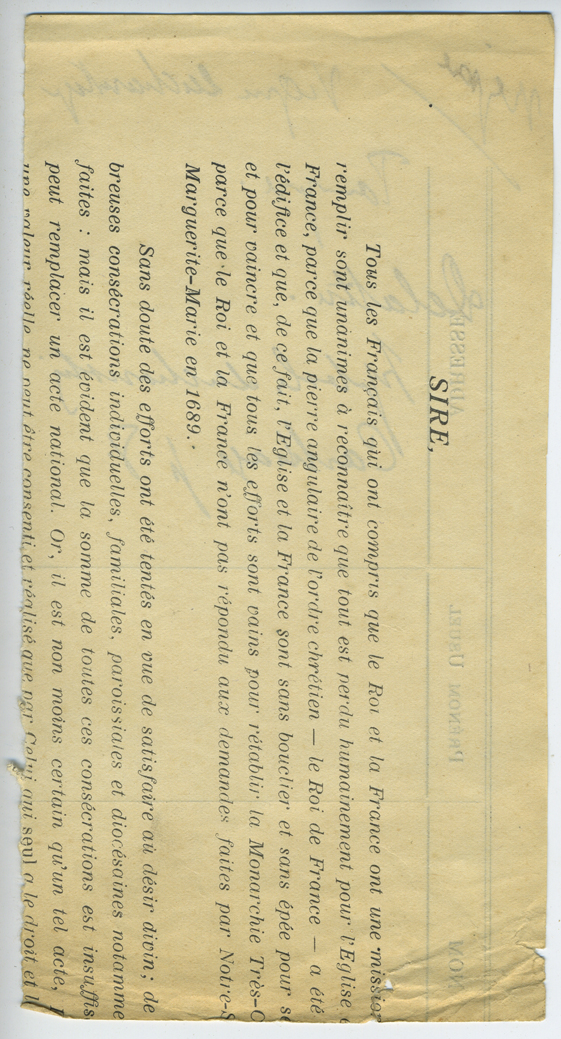 SIRE,
Tous les Français qui ont compris que le Roi et la France ont une mission
remplir sont unanimes à reconnaître que tout est perdu humainement pour l'Eglise
France, parce que la pierre angulaire de l'ordre chrétien — le Roi de France — a été
l'édifice et que, de ce fait, l'Eglise et la France sont sans bouclier et sans épée pour s
et pour vaincre et que tous les efforts sont vains pour rétablir la Monarchie Très-C
parce que le Roi et la France n'ont pas répondu aux demandes faites par Notre-S
Marguerite-Marie en 1689.
Sans doute des efforts ont été tentés en vue de satisfaire au désir divin; de
breuses consécrations individuelles, familiales, paroissiales et diocésaines notamme
faites : mais il est évident que la somme de toutes ces consécrations est insuffis
peut remplacer un acte national. Or, il est non moins certain qu'un tel acte, p
une valeur réelle ne peut être consenti et réalisé que par Celui qui seul a le droit et l
ADRESSE
PRÉNOM USUEL
NOM